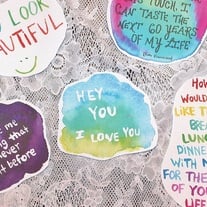 O LOOK
AUTIFUL
S TOUCH. I
CAN TASTE THE
NEXT 60 YEARS
OF MY LIFE
HEY
YOU
I LOVE YOU
me
g that
never
before
HOW
WOULD
LIKE T
BREA
LUNC
DINNE
WITH M
FOR THE
OF YOU
LIFE